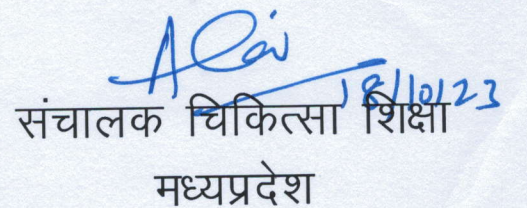 18/10/23
संचालक चिकित्सा शिक्षा
मध्यप्रदेश